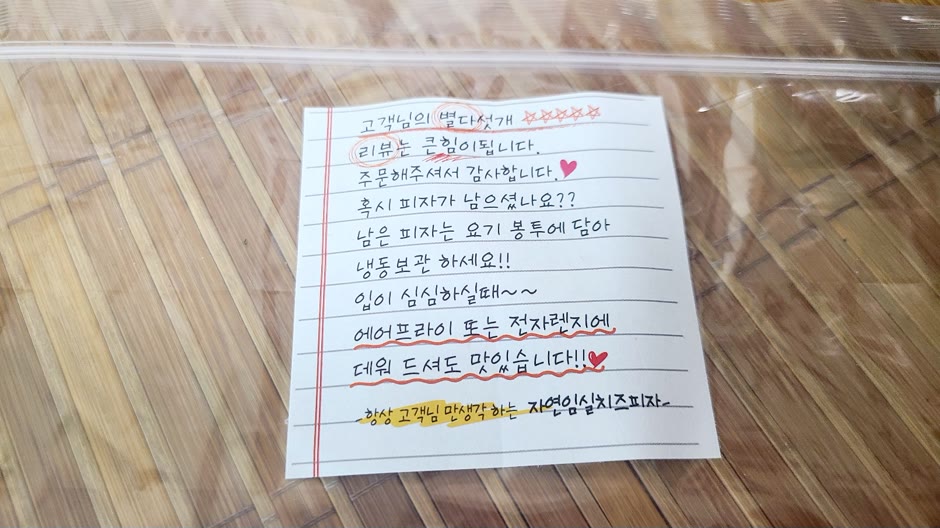 고객님의 별다섯개 ☆☆☆☆☆
리뷰는 큰힘이됩니다.
주문해주셔서 감사합니다.♥
혹시 피자가 남으셨나요??
남은 피자는 요기 봉투에 담아
냉동보관 하세요!!
입이 심심하실때~~
에어프라이 또는 전자렌지에
데워 드셔도 맛있습니다!!♥
-항상 고객님 만생각 하는 자연임실치즈피자-